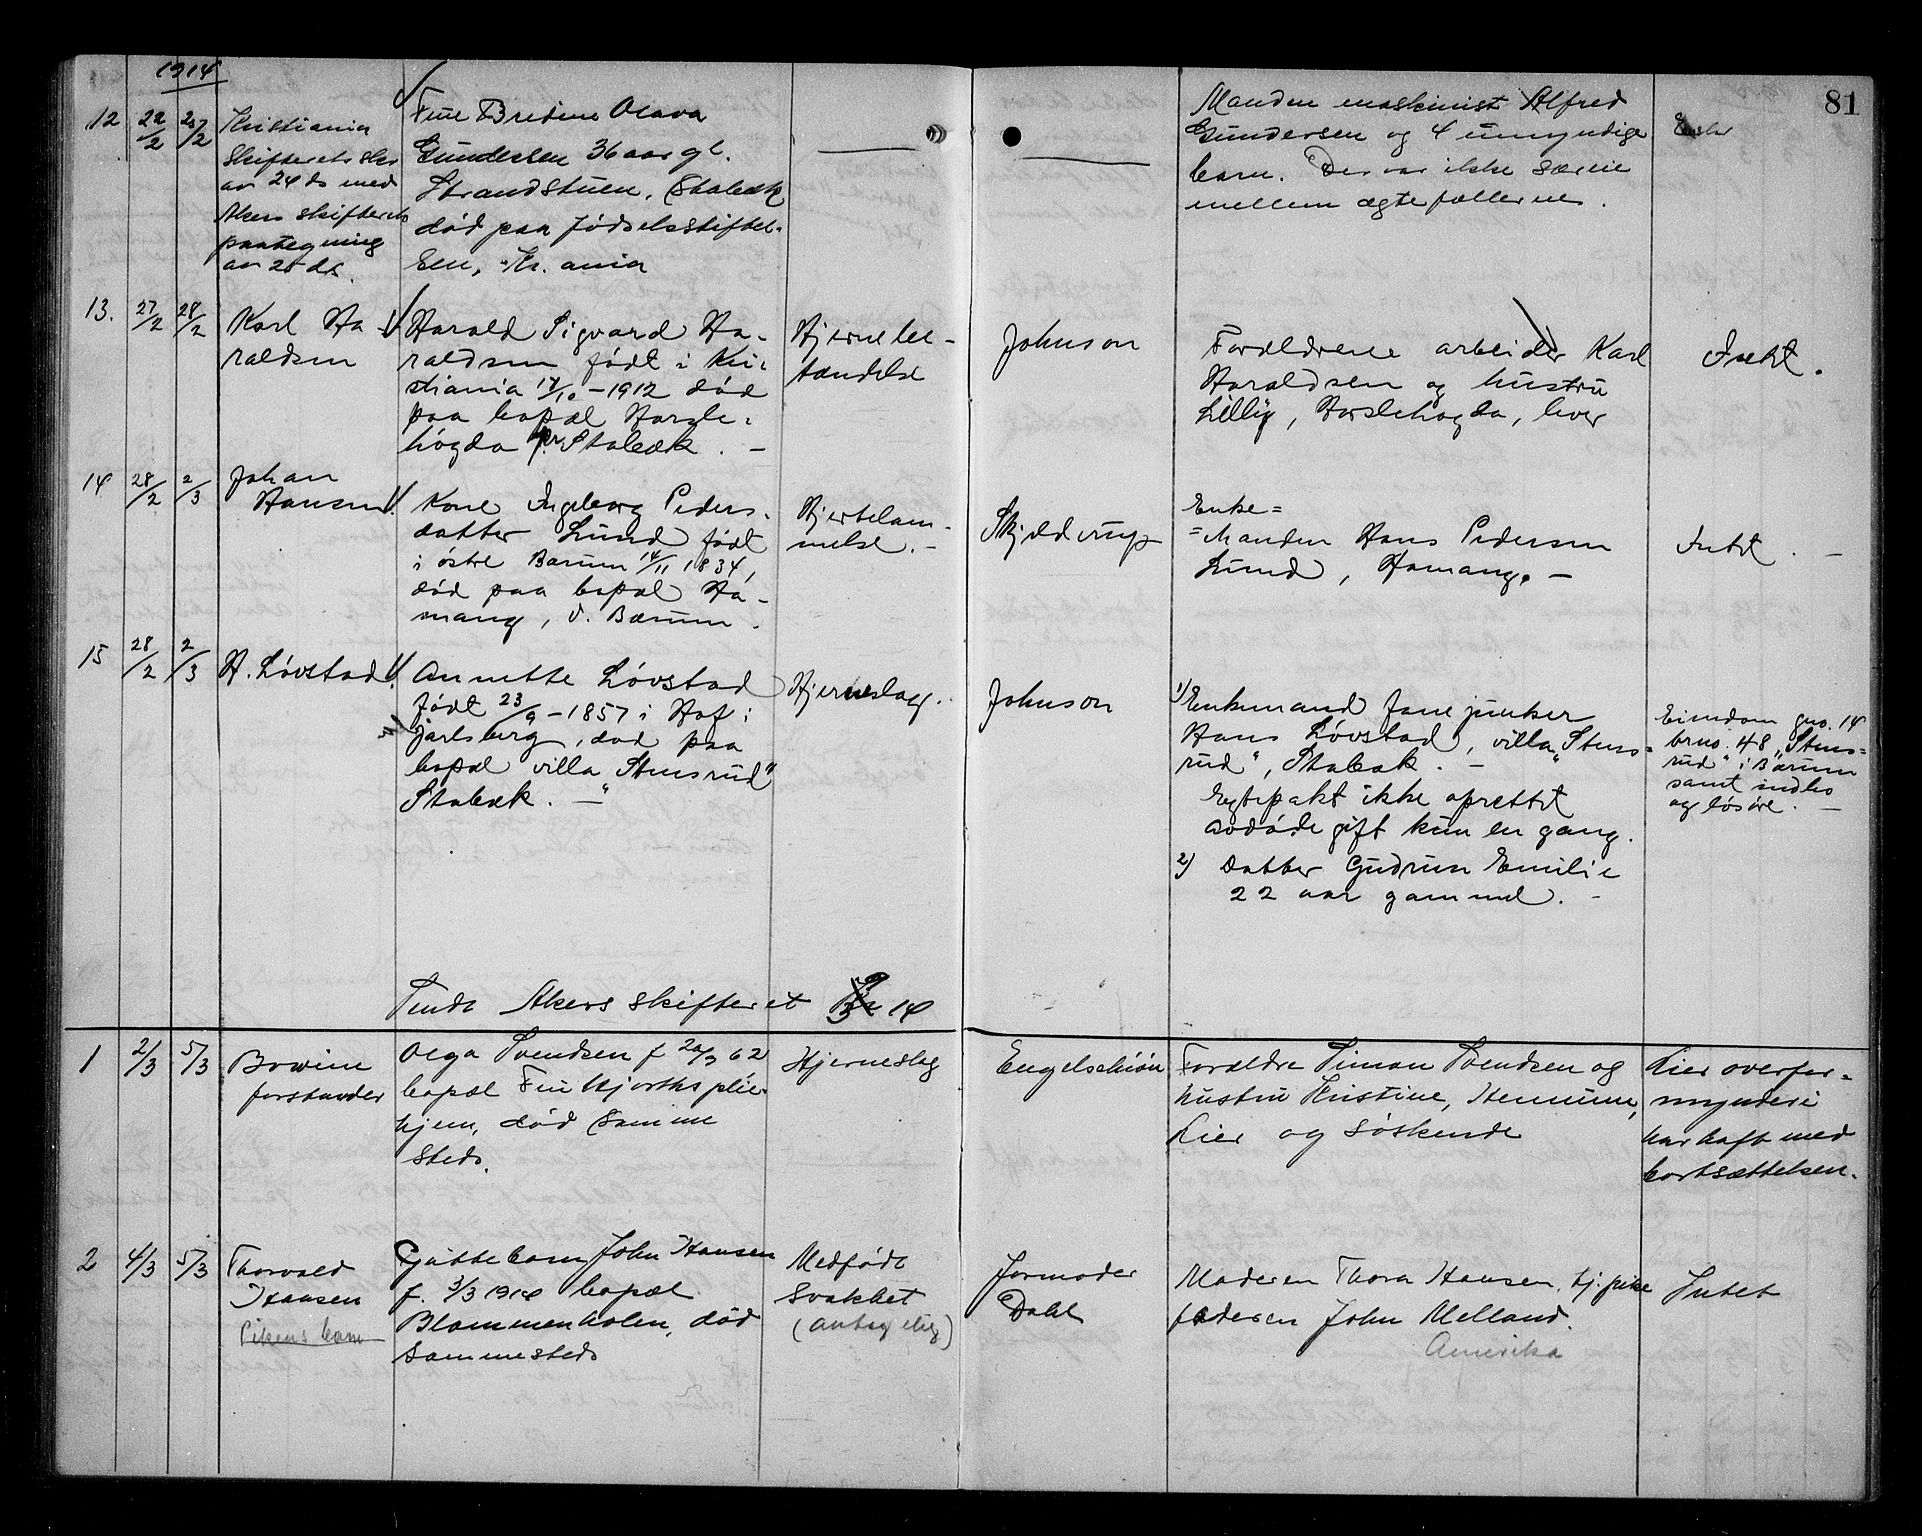 1914
81
12 22/2 25/2
Kristiania
skifterets skr
av 24 ds med
Akers skifterets
paategning
av 25 ds.
Frue Bredine Olava
Gundersen 36 aar gl.
Strandstuen, Stabæk
død paa Fødselsstiftel-
sen, Kr.ania
Manden maskinist Alfred
Gundersen og 4 umyndige
barn. Der var ikke særeie
mellem ægtefællerne.
13. 27/2 28/2
Karl Ha-
raldsen
Harald Sigvard Ha-
raldsen født i Kri-
stiania 17/10 - 1912 død
paa bopæl Harsle-
høgda pr. Stabæk. -
Hjernebe-
tændelse
Johnson
Forældrene arbeider Karl
Haraldsen og hustru
Lilly, Harslehøgda, lever
Intet.
14 28/2 2/3
Johan
Hansen
Kone Ingeborg Peders-
datter Lund født
i østre Bærum 14/11 1834,
død paa bopæl Ha-
mang, V. Bærum.
Hjertelam-
melse. -
Skjelderup
Enke=
=Manden Hans Pedersen
Lund, Hamang. -
Intet. -
15 28/2 2/3
H. Løvstad
Annette Løvstad
født 23/9 - 1857 i Hof i
Jarlsberg, død paa
bopæl villa "Stensrud"
Stabæk. -
Hjerneslag.
Johnson
1) Enkemand fanejunker
Hans Løvstad, villa "Stens-
rud", Stabæk. -
Egtepakt ikke oprettet
avdøde gift kun en gang.
2) Datter Gudrun Emilie
22 aar gammel. -
Eiendom gno. 14
brno. 48 "Stens-
rud" i Bærum
samt indbo
og løsøre. -
Sendt Akers skifteret 14
1 2/3 5/3
forstander
Olga Svendsen f 20/9 62
bopæl Fru Hjorths plie-
hjem, død samme
steds.
Hjerneslag
Engelschiøn
Forældre Simon Svendsen og
hustru Kristine, Hennum,
Lier og søskende
Lier overfor-
mynderi
har haft med
bortsættelsen.
2 4/3 5/3
Thorvald
Hansen
Pikens barn
Guttebarn John Hansen
f. 3/3 1914 bopæl
Blommenholm, død
sammesteds
Medfødt
svakhet
(antagelig)
Jormoder
Dahl
Moderen Thora Hansen, tj.pike
faderen John Melland.
Amerika
Intet